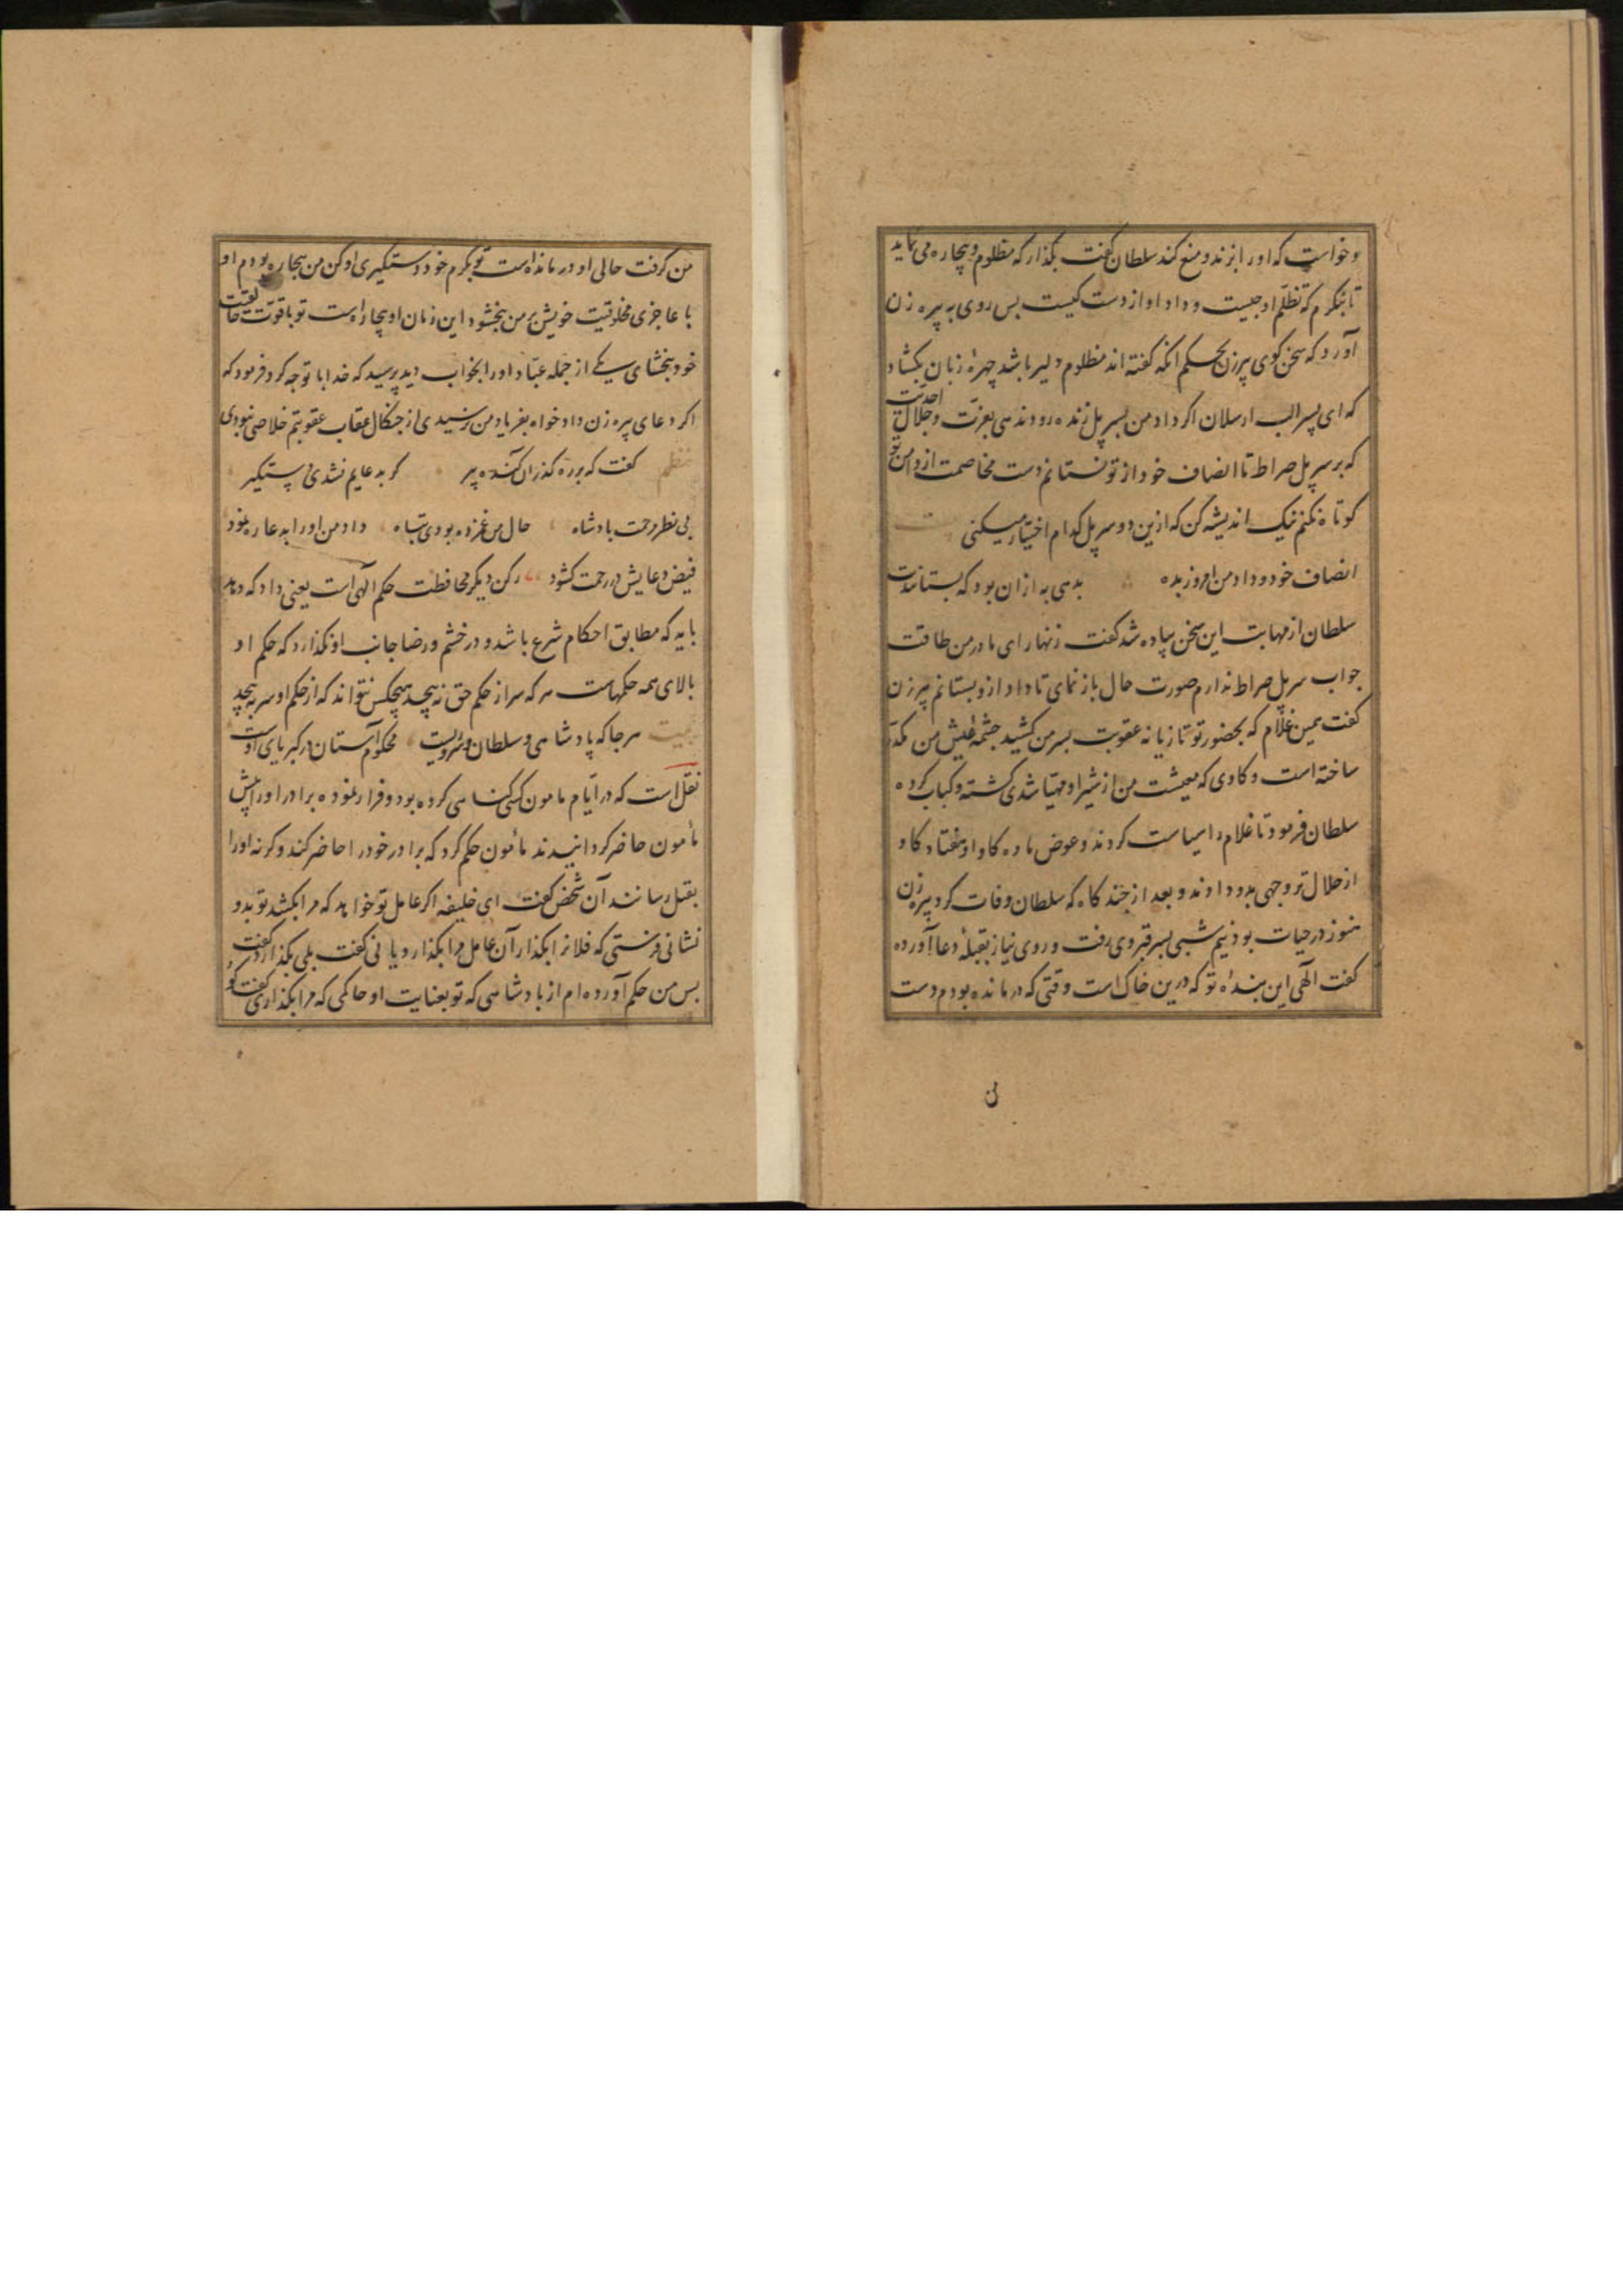 و خواست که اورا بزند و منع کند سلطان گفت بگذار که مظلوم و بیچاره می نماید
تا بنگرم که تظلم او چیست و داد او از دست کیست بس روی به پیره زن
آورد که سخن کوی پیرزن بحکم آنکه گفته اند مظلوم دلیر باشد چهرهٔ زبان بکشاد
که ای پسر الب ارسلان اکر داد من بسر پل زنده رود ندهی بعزت و جلال احدیت
که بر سر پل صراط تا انصاف خود از تو نستانم دست مخاصمت از دامن تو
کوتاه نکنم نیک اندیشه کن که ازین دو سر پل کدام اختیار میکنی
انصاف خود و داد من امروز بده بدهی به ازان بود که بستانندت
سلطان از مهابت این سخن پیاده شد گفت زنهار ای مادر من طاقت
جواب سر پل صراط ندارم صورت حال باز نمای تا داد از و بستانم پیرزن
گفت همین غلام که بحضور تو تازیانه عقوبت بسر من کشید چشمه عیش من مکدر
ساخته است و کاوی که معیشت من از شیر او مهیا شدی کشته و کباب کرده
سلطان فرمود تا غلام را سیاست کردند و عوض ماده کاو او هفتاد کاو
از حلال تر وجهی بدو دادند و بعد از چند کاه که سلطان وفات کرد پیره زن
هنوز در حیات بود نیم شبی بسر قبر وی رفت و روی نیاز بقبلهٔ دعا آورده
گفت الهی این بندهٔ تو که درین خاک است وقتی که درمانده بودم دست
ن
من کرفت حالی او درمانده است تو بکرم خود دستکیری او کن من بیچاره بودم او
با عاجزی مخلوقیت خویش بر من بخشود این زمان او بیچاره است تو با قوت خالقیت
خود ببخشای یکی از جمله عباد اورا بخواب دید پرسید که خدا با تو چه کرد فرمود که
اکر دعای پیره زن داد خواه بفریاد من نرسیدی از چنکال عقاب عقوبتم خلاصی نبودی
نظم گفت که بر ره کذران کنده پیر کر بدعایم نشدی دستکیر
بی نظر رحمت بادشاه حال من غمزده بودی تباه داد من اورا بدعا ره نمود
فیض دعایش در رحمت کشود رکن دیکر محافظت حکم الهی است یعنی داد که دهد
باید که مطابق احکام شرع باشد و در خشم و رضا جانب او نکذارد که حکم او
بالای همه حکمهاست هر که سر از حکم حق نه پیچد هیچکس نتواند که از حکم او سر به پیچد
بیت هر جا که پادشاهی و سلطان و سرویست محکوم آستان در کبریای اوست
نقل است که در ایام مامون کسی کناهی کرده بود و فرار نموده برادر اورا پیش
مأمون حاضر کردانیدند مأمون حکم کرد که برادر خود را حاضر کند و کرنه اورا
بقتل رسانند آن شخص گفت ای خلیفه اکر عامل تو خواهد که مرا بکشد تو بدو
نشانی فرستی که فلانرا بکذار آن عامل مرا بکذارد یا نی گفت بلی بکذارد گفت
بس من حکم آورده ام از بادشاهی که تو بعنایت او حاکمی که مرا بکذاری گفت کو